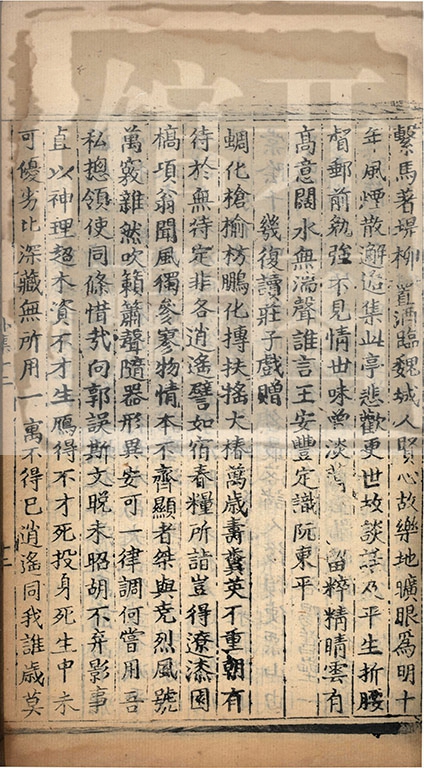 繫馬著堤柳置酒臨魏城人賢心故樂地曠眼爲明十
年風煙散邂逅集此亭悲歡更世故談話及平生折腰
督郵前勉強不見情世味曾淡薄留粹精晴雲有
高意闊水無湍聲誰言王安豐定識阮東平
幾復讀莊子戲贈
蜩化槍榆枋鵬化摶扶搖大椿萬歲壽糞英不重朝有
待於無待定非各逍遙譬如宿舂糧所詣豈得遼漆園
槁項翁聞風獨參寥物情本不齊顯者桀與堯烈風號
萬竅雜然吹籟簫聲隨器形異安可一律調何嘗用吾
私摠領使同條惜哉向郭誤斯文晚未昭胡不弃影事
直以神理超木資不才生鴈得不才死投身死生中未
可優劣比深藏無所用一寓不得已逍遙同我誰歲莫